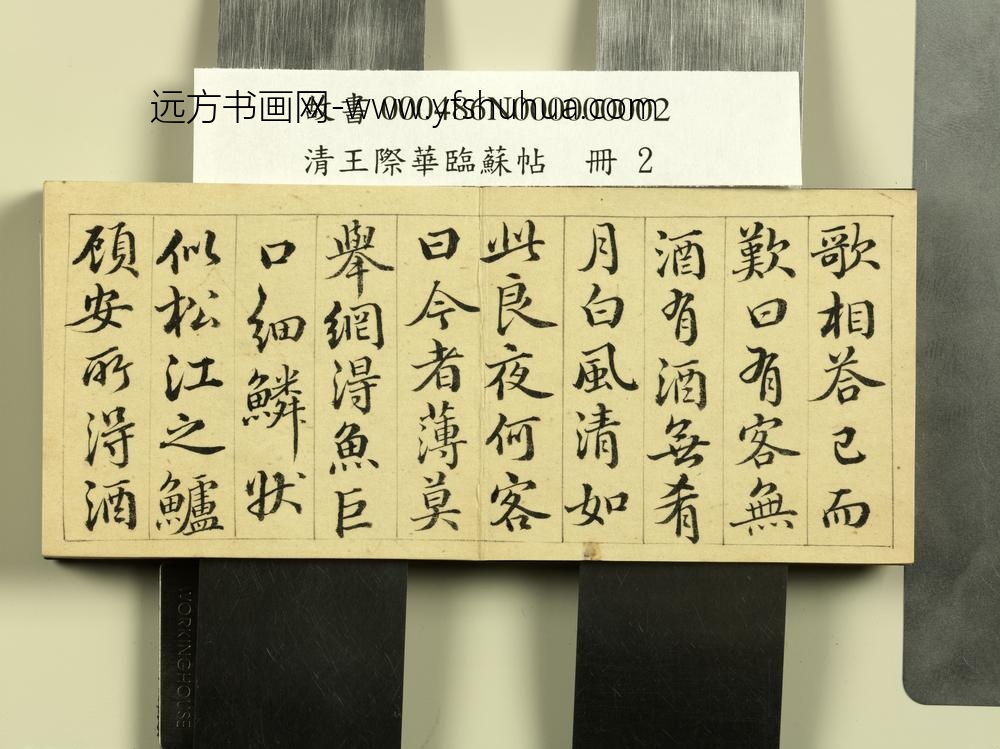 远方书画网-www.yfshuhua.com
書 000486N000000002
清王際華臨蘇帖 冊 2
歌相答已而
歎曰有客無
酒有酒無肴
月白風清如
此良夜何客
曰今者薄莫
舉網得魚巨
口細鱗狀
似松江之鱸
顧安所得酒
WORKINGHOUSE